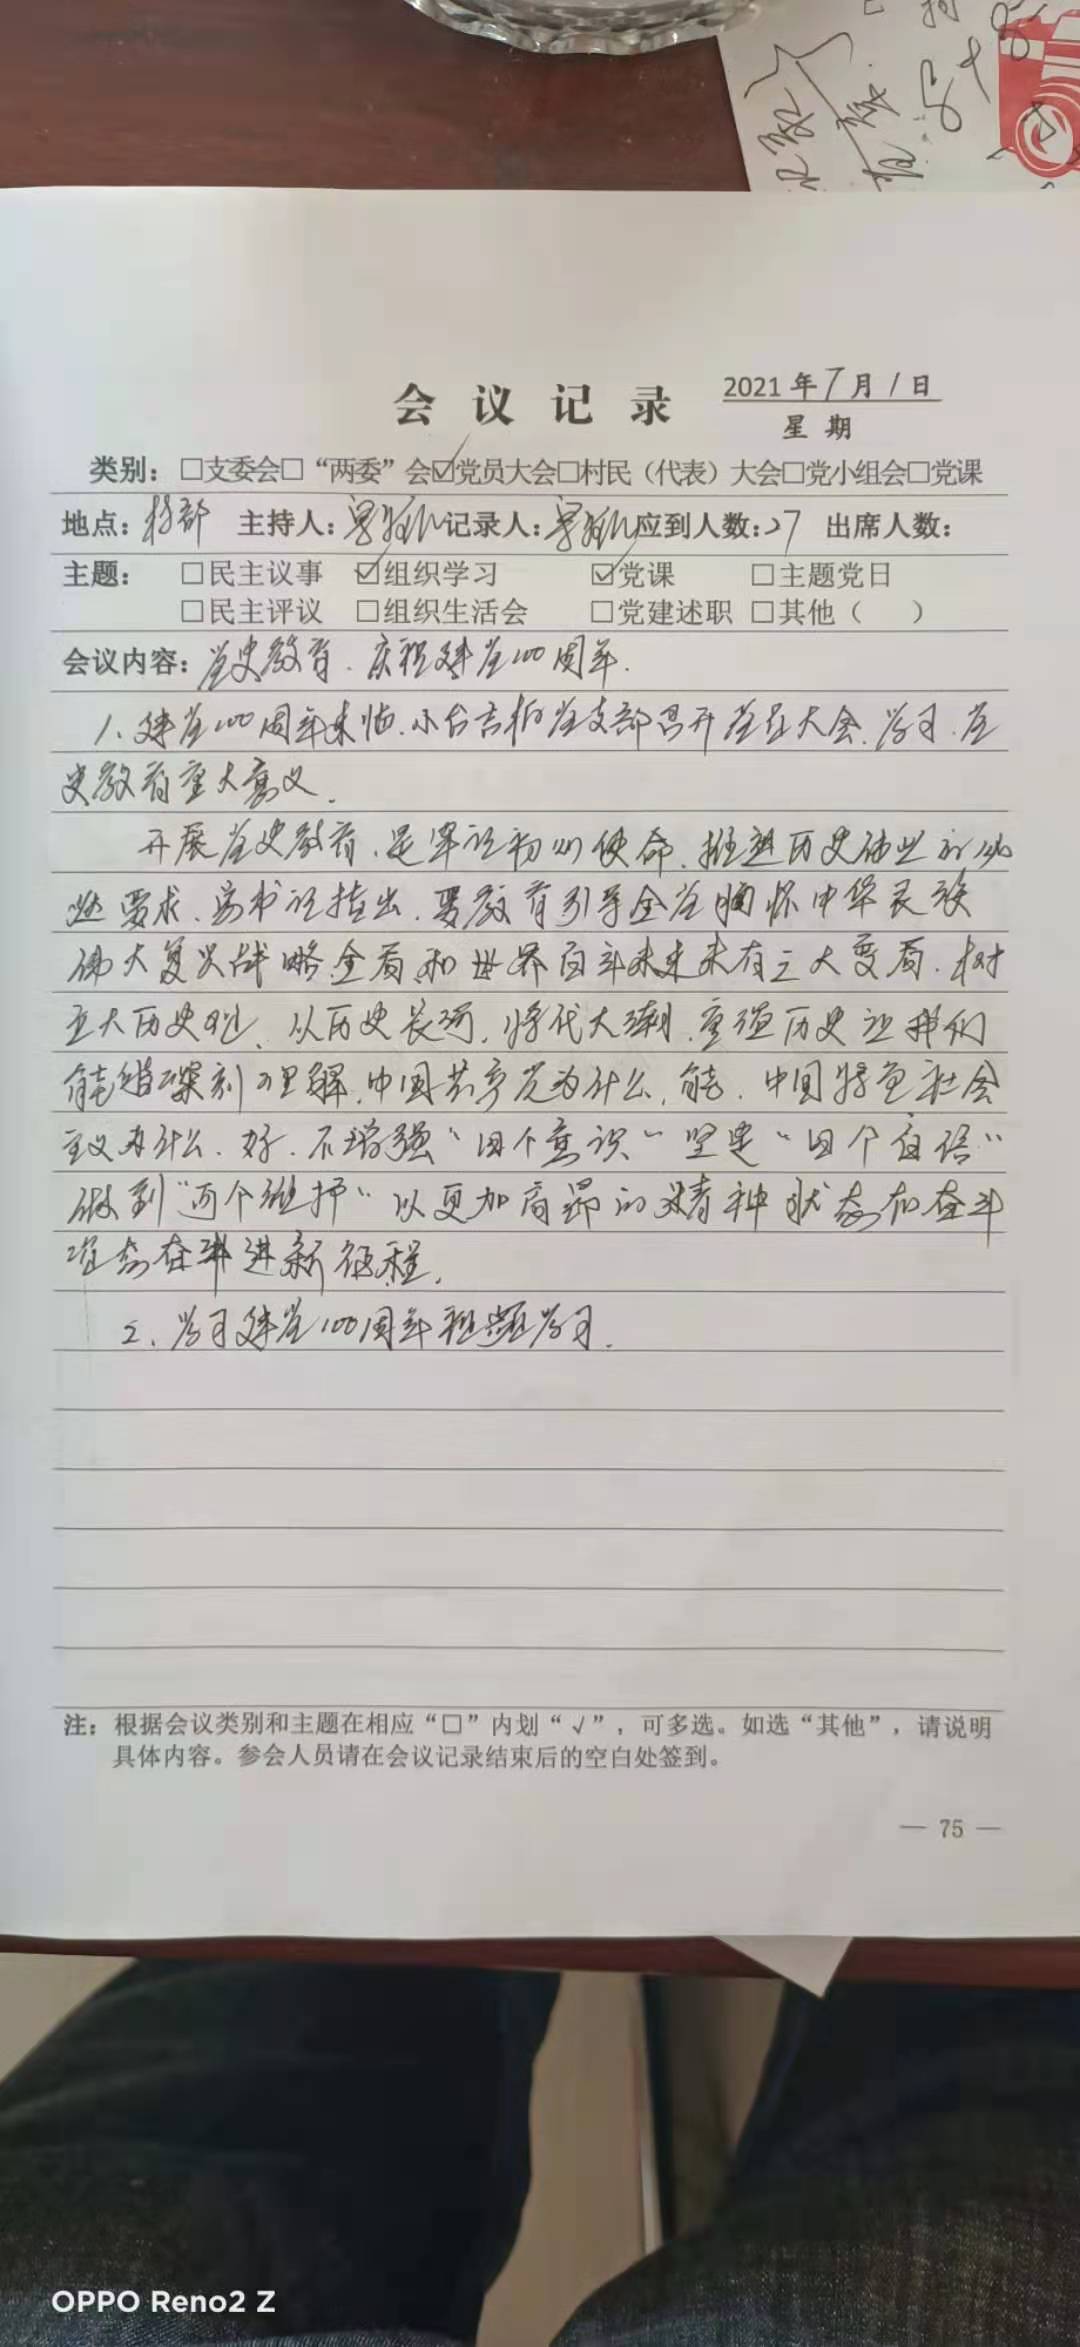 会议记录 2021年7月1日
星期
类别：□支委会□“两委”会☑党员大会□村民（代表）大会□党小组会□党课
地点：村部 主持人： 记录人： 应到人数：27 出席人数：
主题： □民主议事 ☑组织学习 ☑党课 □主题党日
□民主评议 □组织生活会 □党建述职 □其他（ ）
会议内容：党史教育、庆祝建党100周年.
1、建党100周年来临、小台吉村党支部召开党员大会、学习、党
史教育重大意义.
开展党史教育、是牢记初心使命、推进历史伟业的必
然要求、书记指出、要教育引导全党胸怀中华民族
伟大复兴战略全局和世界百年未来未有之大变局、树
立大历史观、从历史长河、时代大潮、历史让我们
能深刻理解、中国共产党为什么、能、中国特色社会
主义为什么、好、不增强“四个意识”坚定“四个自信”
做到“两个维护”以更加高昂的精神状态和奋斗
姿态奋斗进新征程.
2、学习建党100周年专题学习.
注：根据会议类别和主题在相应“□”内划“√”，可多选。如选“其他”，请说明
具体内容。参会人员请在会议记录结束后的空白处签到。
— 75 —
OPPO Reno2 Z